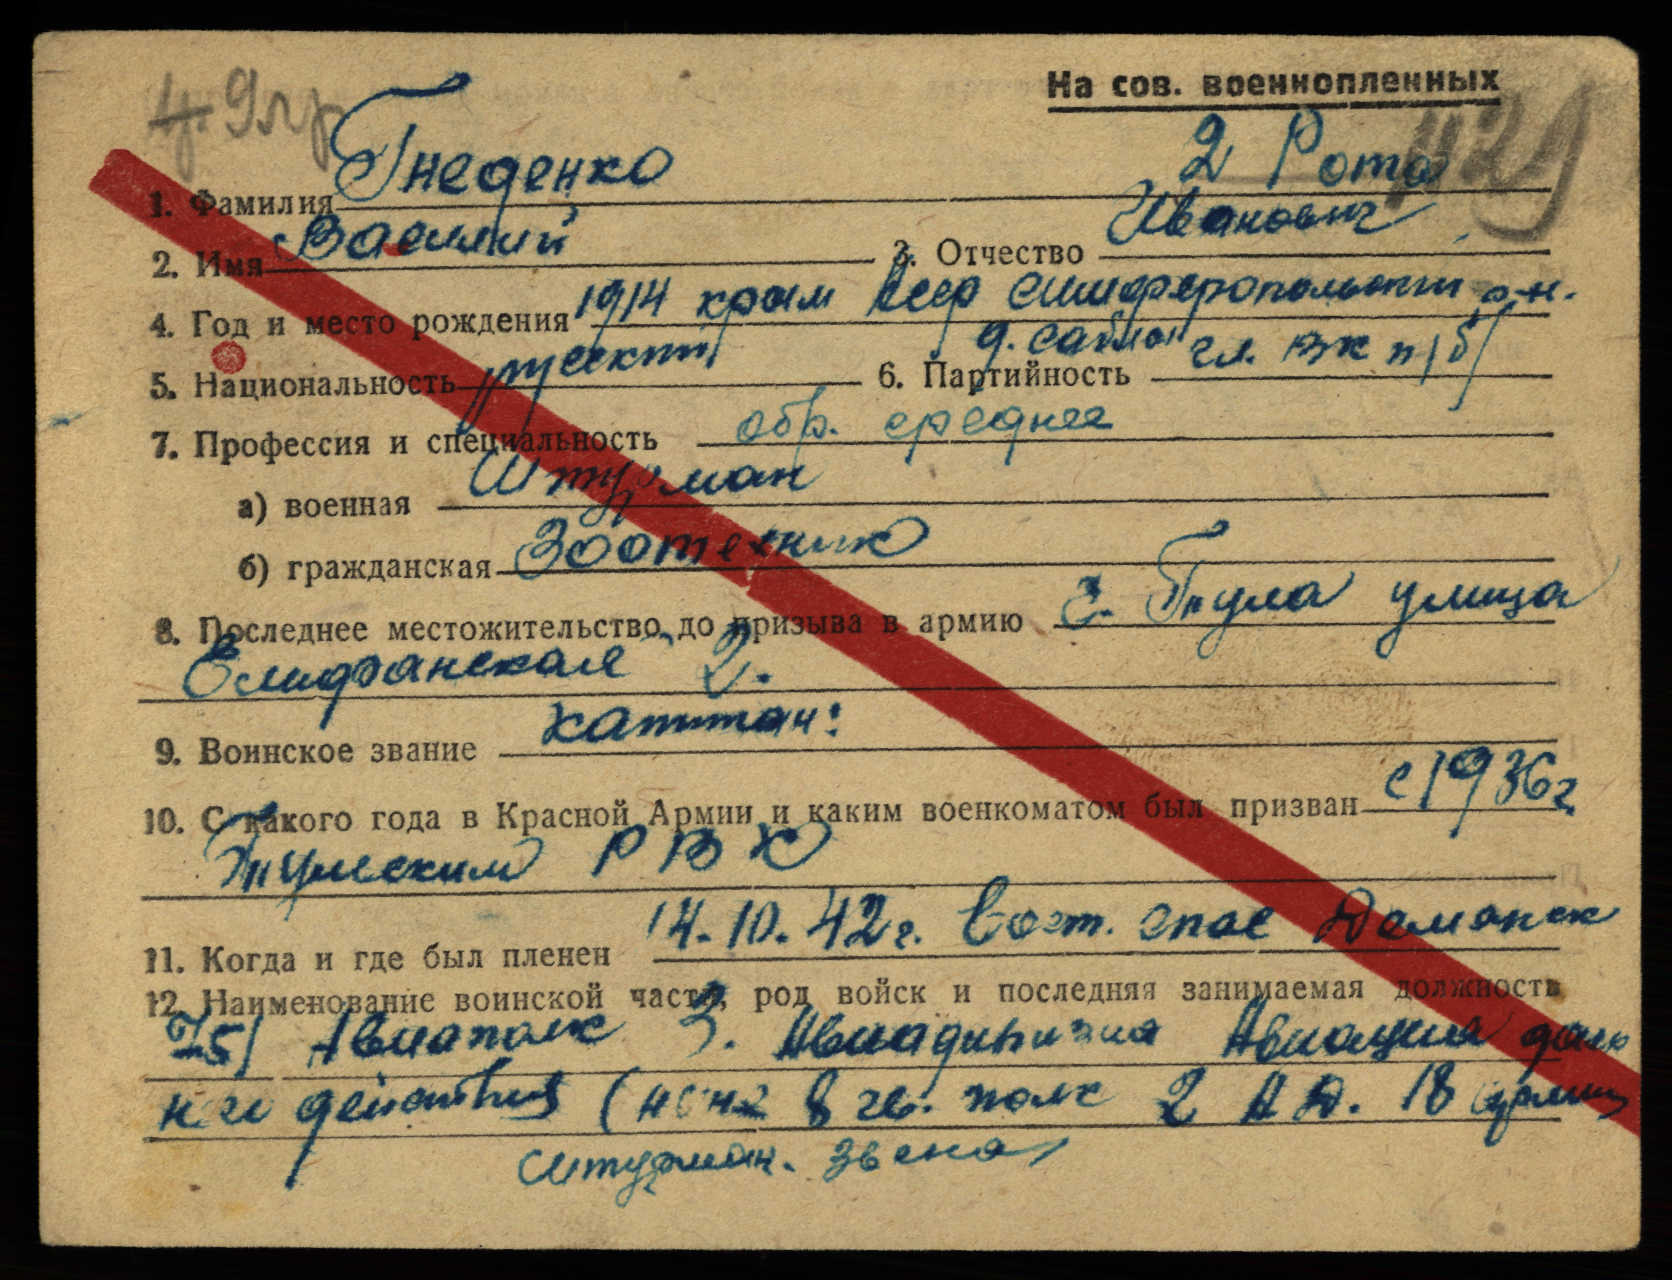 На сов. военнопленных
2 Рота
1. Фамилия Гнеденко
2. Имя Василий 3. Отчество Иванович
4. Год и место рождения 1914 крым Асср симферопольский р-н.
д. саблы
5. Национальность русский 6. Партийность чл. ВКП(б)
7. Профессия и специальность обр. среднее
а) военная Штурман
б) гражданская Зоотехник
8. Последнее местожительство до призыва в армию г. Тула улица
Епифанская 2.
9. Воинское звание капитан:
10. С какого года в Красной Армии и каким военкоматом был призван с 1936 г
Тульским РВК
11. Когда и где был пленен 14.10.42 г. Вост. спас Демянск
12. Наименование воинской части, род войск и последняя занимаемая должность
751 Авиаполк 3. Авиадивизия Авиация даль
него действия (ныне 8 гв. полк 2 А Д. 18 армии
штурман. звена